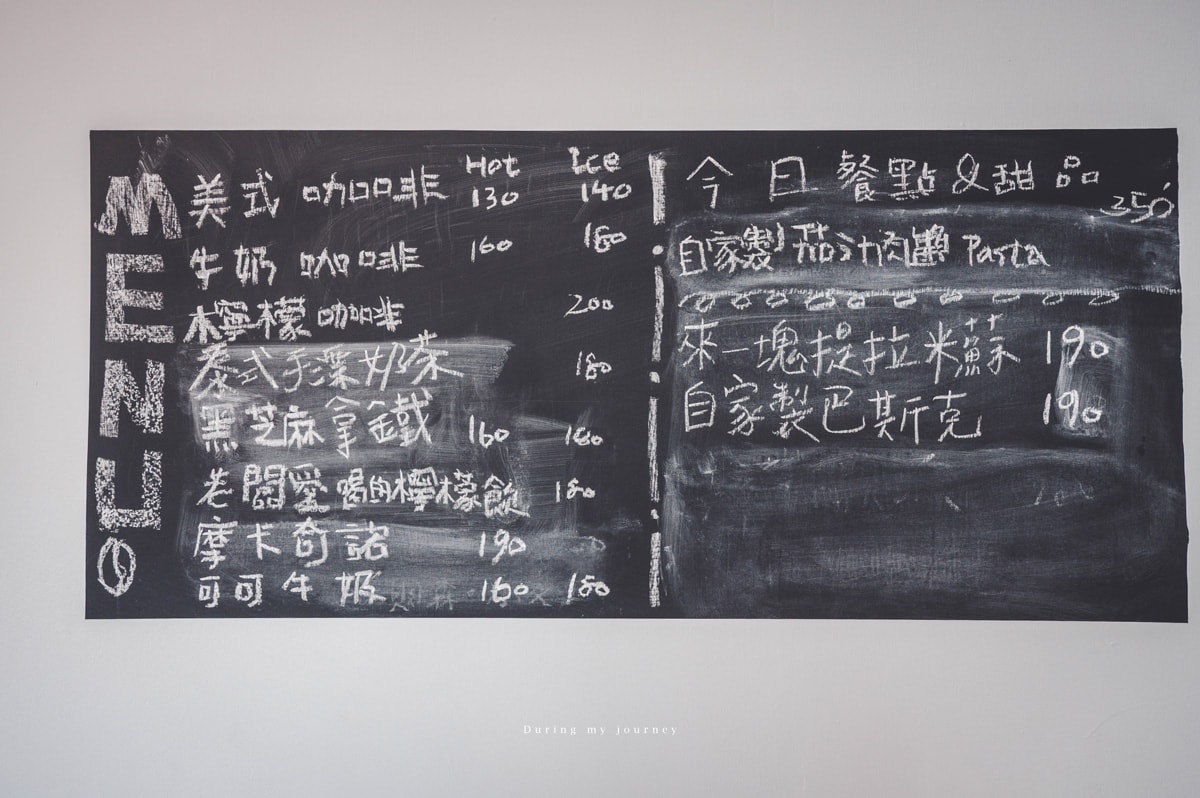 MENU
Hot Ice
美式咖啡 130 140
牛奶咖啡 160 180
檸檬咖啡 200
泰式手標奶茶 180
黑芝麻拿鐵 160 180
老闆愛喝的檸檬飲 180
摩卡奇諾 190
可可牛奶 160 180
今日餐點&甜品
250
自家製茄汁肉醬 Pasta
來一塊提拉米蘇 190
自家製巴斯克 190
During my journey